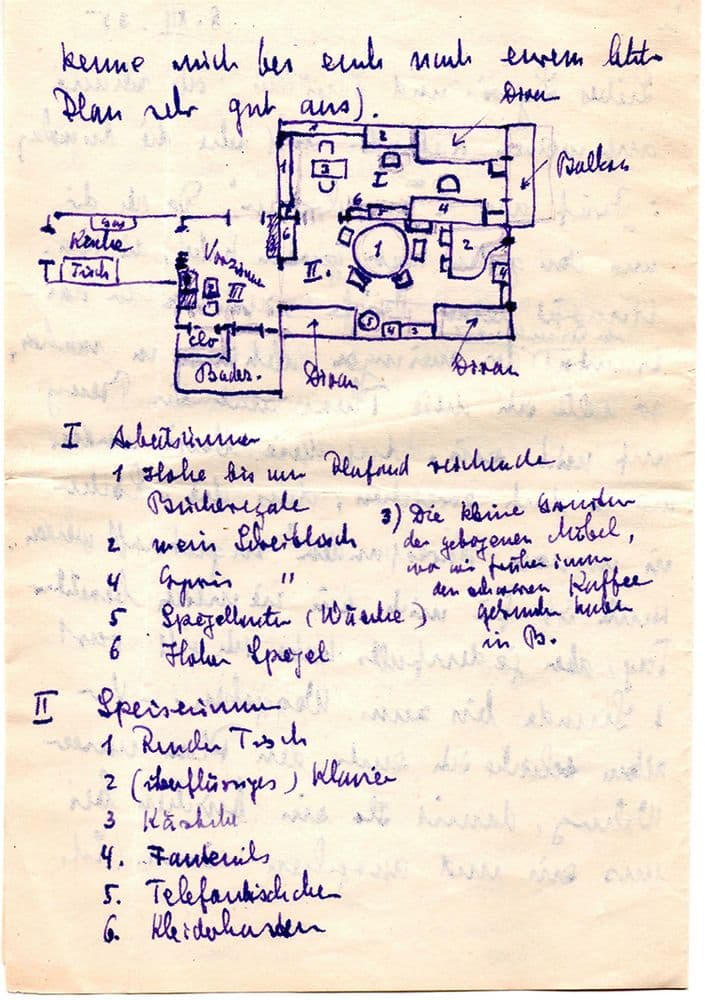 kenne mich bei euch nach eurem letzten
Plan sehr gut aus).
Divan
Balkon
1 2
3 I
1
6 5 4
6
1 2
II.
4
Gas
Küche
Tisch
Vorzimmer
III
Clo
Badez.
5 4 3
Divan
Divan
I Arbeitszimmer
1 Hohe bis zum Plafond reichende
Bücherregale
2 mein Schreibtisch
4 "
5 Spiegelkasten (Wäsche)
6 Hoher Spiegel
3) Die kleine
der gebogenen Möbel,
wo wir früher immer
den schwarzen Kaffee
getrunken haben
in B.
II Speisezimmer
1 Runder Tisch
2 (überflüssiges) Klavier
3
4. Fauteuils
5. Telefontischchen
6. Kleiderkasten